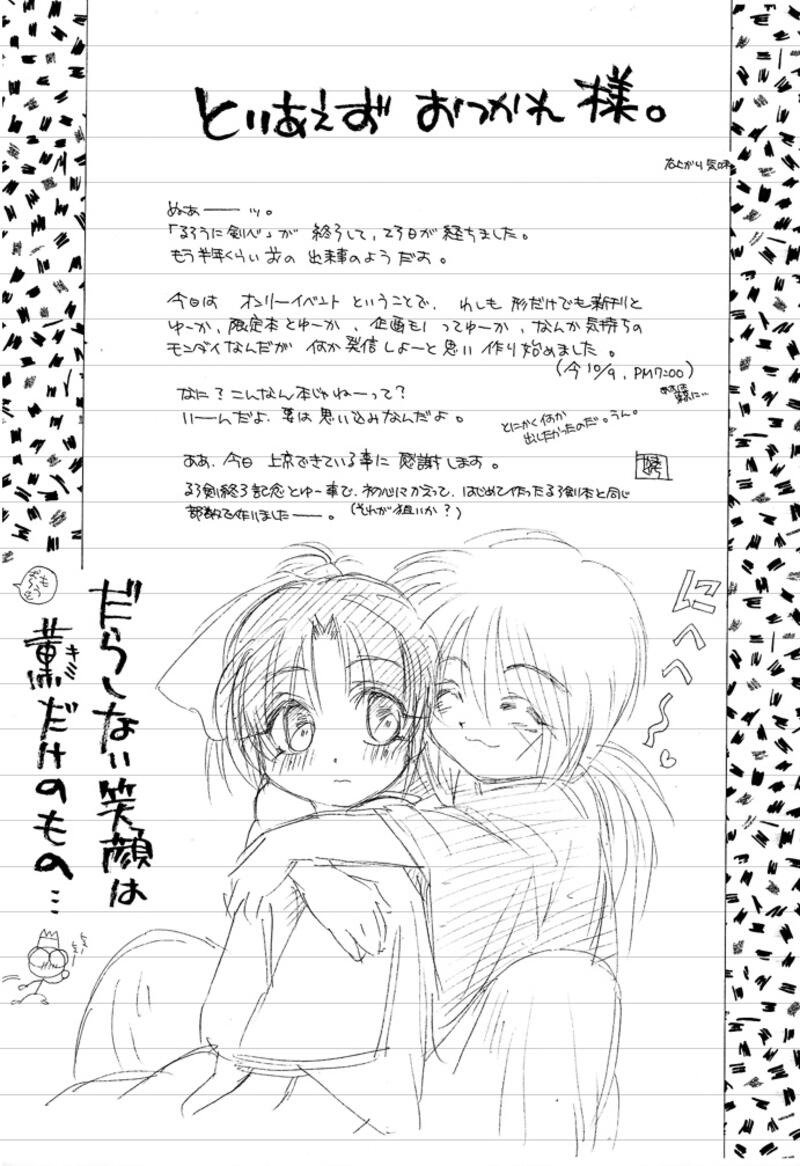 とりあえず おつかれ様。
右上がり気味
ぬぁーーッ。
「るろうに剣心」が 終了して、23日が経ちました。
もう半年くらい前の 出来事のようだお。
今日は オンリーイベント ということで、わしも 形だけでも新刊と
ゆーか、限定本とゆーか、企画もlってゆーか、なんか気持ちの
モンダイなんだが 何か発信しよーと思い 作り始めました。
(今10/9、PM7:00)
なに?こんなん本じゃねーって?
いーんだよ、要は思い込みなんだよ。
とにかく何か
出したかったのだ。うん。
ああ、今日 上京できている事に 感謝します。
るろ剣終了記念とゆー事で、初心にかえって、はじめて作ったるろ剣本と同じ
部数で作りましたーー。(それが狙いか?)
にへへへ〜♡
だらしない笑顔は
薫だけのもの…
キミ